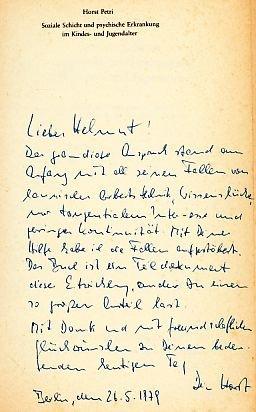 Horst Petri
Soziale Schicht und psychische Erkrankung
im Kindes- und Jugendalter
Lieber Helmut!
Der grandiose Anspruch stand am
Anfang mit all seinen Fallen von
Arbeitstechnik, Wissenslücken,
nur tangentialem Interesse und
geringer Kontinuität. Mit Deiner
Hilfe habe ich die Fallen aufgestöbert.
Das Buch ist ein Teildokument
dieser Entwicklung, an der Du einen
so großen Anteil hast.
Mit Dank und mit freundschaftlichen
Glückwünschen zu Deinem bedeu-
tenden heutigen Tag
Dein Horst
Berlin, den 26.5.1979